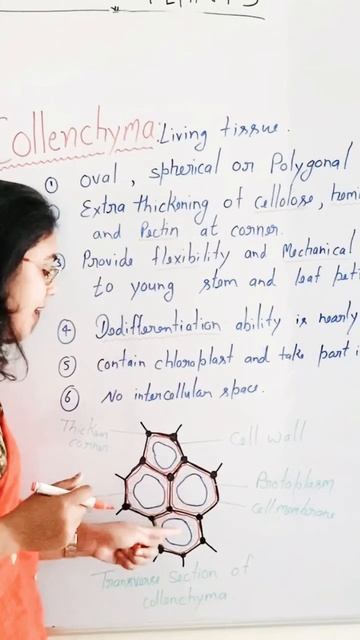 Collenchyma: Living tissue.
① Oval, spherical or Polygonal
Extra thickening of cellolose, hemi
and Pectin at corner.
Provide flexibility and Mechanical
to young stem and leaf peti
④ Dedifferentiation ability is nearly
⑤ contain chloroplast and take part i
⑥ No intercellular space.
Thicken corner
Cell wall
Protoplasm
cell membrane
Transverse section of
collenchyma.